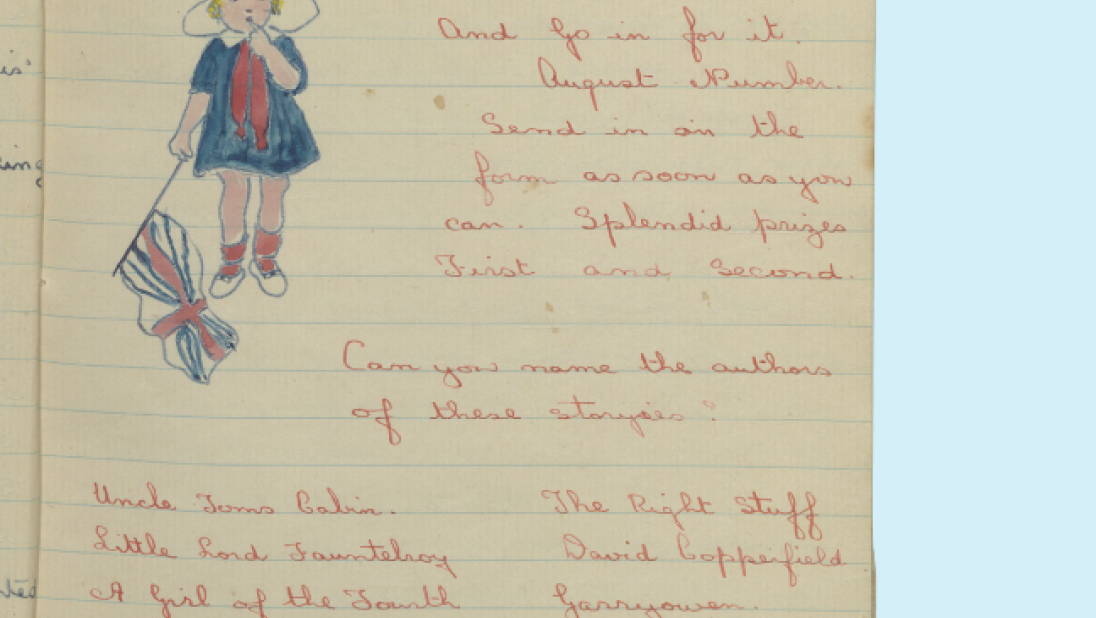 And Go in for it.
August Number.
Send in on the
form as soon as you
can. Splendid prizes
First and Second.
Can you name the authors
of these storyies?
Uncle Toms Cabin. The Right Stuff
Little Lord Fauntelroy David Copperfield
A Girl of the Fourth Garryowen.